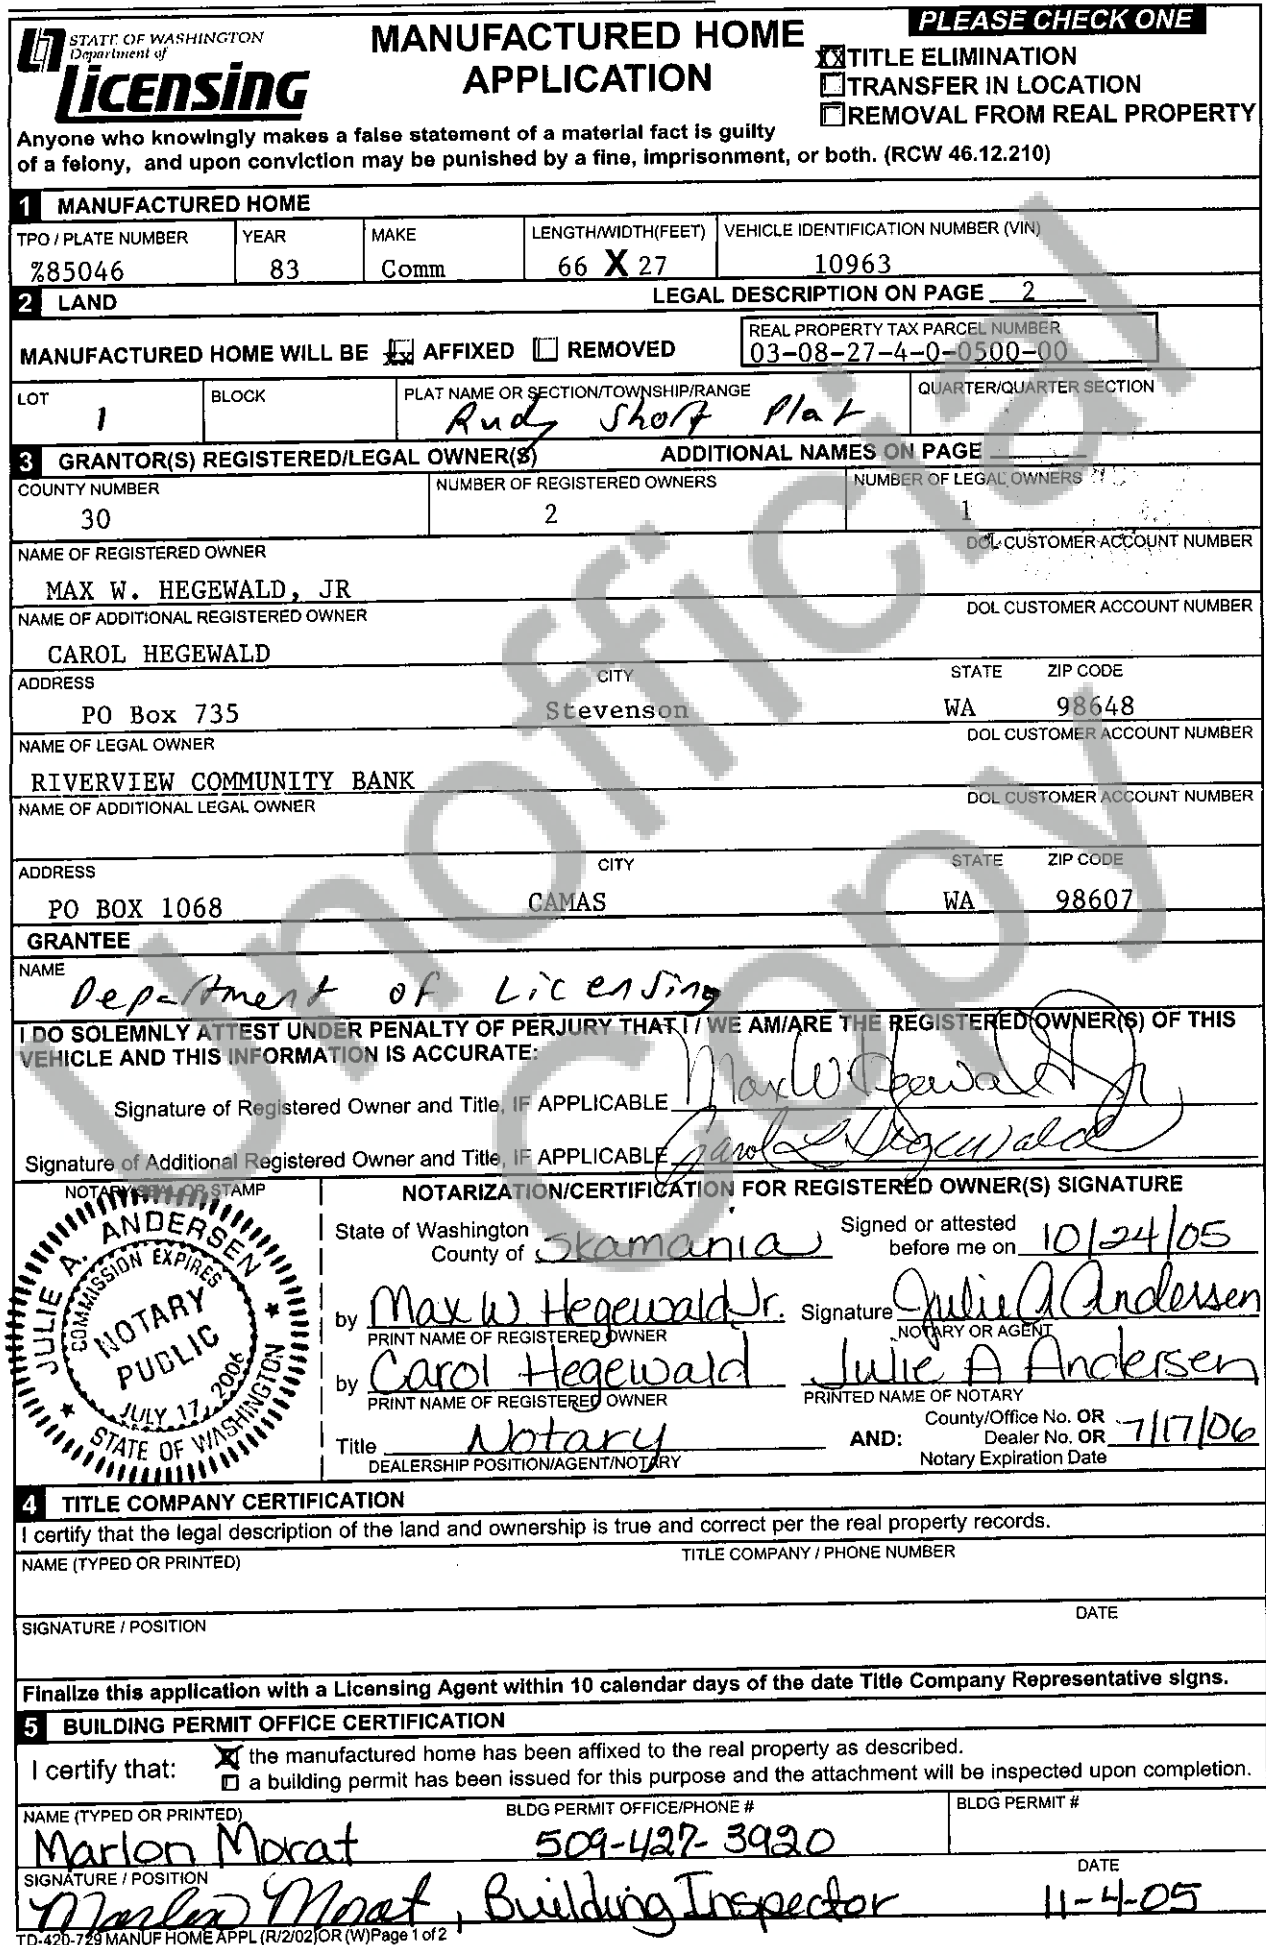 STATE OF WASHINGTON
Department of
Licensing
MANUFACTURED HOME
APPLICATION
PLEASE CHECK ONE
XX TITLE ELIMINATION
TRANSFER IN LOCATION
REMOVAL FROM REAL PROPERTY
Anyone who knowingly makes a false statement of a material fact is guilty
of a felony, and upon conviction may be punished by a fine, imprisonment, or both. (RCW 46.12.210)
1 MANUFACTURED HOME
TPO / PLATE NUMBER YEAR MAKE LENGTH/WIDTH(FEET) VEHICLE IDENTIFICATION NUMBER (VIN)
%85046 83 Comm 66 X 27 10963
2 LAND LEGAL DESCRIPTION ON PAGE 2
MANUFACTURED HOME WILL BE xx AFFIXED REMOVED
REAL PROPERTY TAX PARCEL NUMBER
03-08-27-4-0-0500-00
LOT BLOCK PLAT NAME OR SECTION/TOWNSHIP/RANGE QUARTER/QUARTER SECTION
1 Rudy Short Plat
3 GRANTOR(S) REGISTERED/LEGAL OWNER(S) ADDITIONAL NAMES ON PAGE
COUNTY NUMBER NUMBER OF REGISTERED OWNERS NUMBER OF LEGAL OWNERS
30 2 1
NAME OF REGISTERED OWNER DOL CUSTOMER ACCOUNT NUMBER
MAX W. HEGEWALD, JR
NAME OF ADDITIONAL REGISTERED OWNER DOL CUSTOMER ACCOUNT NUMBER
CAROL HEGEWALD
ADDRESS CITY STATE ZIP CODE
PO Box 735 Stevenson WA 98648
NAME OF LEGAL OWNER DOL CUSTOMER ACCOUNT NUMBER
RIVERVIEW COMMUNITY BANK
NAME OF ADDITIONAL LEGAL OWNER DOL CUSTOMER ACCOUNT NUMBER
ADDRESS CITY STATE ZIP CODE
PO BOX 1068 CAMAS WA 98607
GRANTEE
NAME
Department of Licensing
I DO SOLEMNLY ATTEST UNDER PENALTY OF PERJURY THAT I / WE AM/ARE THE REGISTERED OWNER(S) OF THIS
VEHICLE AND THIS INFORMATION IS ACCURATE:
Signature of Registered Owner and Title, IF APPLICABLE Max W Hegewald Jr
Signature of Additional Registered Owner and Title, IF APPLICABLE Carol L Hegewald
NOTARY SEAL OR STAMP
JULIE A. ANDERSEN
COMMISSION EXPIRES
NOTARY
PUBLIC
JULY 17, 2006
STATE OF WASHINGTON
NOTARIZATION/CERTIFICATION FOR REGISTERED OWNER(S) SIGNATURE
State of Washington
County of Skamania
Signed or attested
before me on 10/24/05
by Max W Hegewald Jr. Signature Julie A Andersen
PRINT NAME OF REGISTERED OWNER NOTARY OR AGENT
by Carol Hegewald Julie A Andersen
PRINT NAME OF REGISTERED OWNER PRINTED NAME OF NOTARY
Title Notary
DEALERSHIP POSITION/AGENT/NOTARY
AND:
County/Office No. OR
Dealer No. OR
Notary Expiration Date
7/17/06
4 TITLE COMPANY CERTIFICATION
I certify that the legal description of the land and ownership is true and correct per the real property records.
NAME (TYPED OR PRINTED) TITLE COMPANY / PHONE NUMBER
SIGNATURE / POSITION DATE
Finalize this application with a Licensing Agent within 10 calendar days of the date Title Company Representative signs.
5 BUILDING PERMIT OFFICE CERTIFICATION
I certify that:
X the manufactured home has been affixed to the real property as described.
a building permit has been issued for this purpose and the attachment will be inspected upon completion.
NAME (TYPED OR PRINTED) BLDG PERMIT OFFICE/PHONE # BLDG PERMIT #
Marlon Morat 509-427-3920
SIGNATURE / POSITION DATE
Marlon Morat, Building Inspector 11-4-05
TD-420-729 MANUF HOME APPL (R/2/02)OR (W)Page 1 of 2
Unofficial
Copy